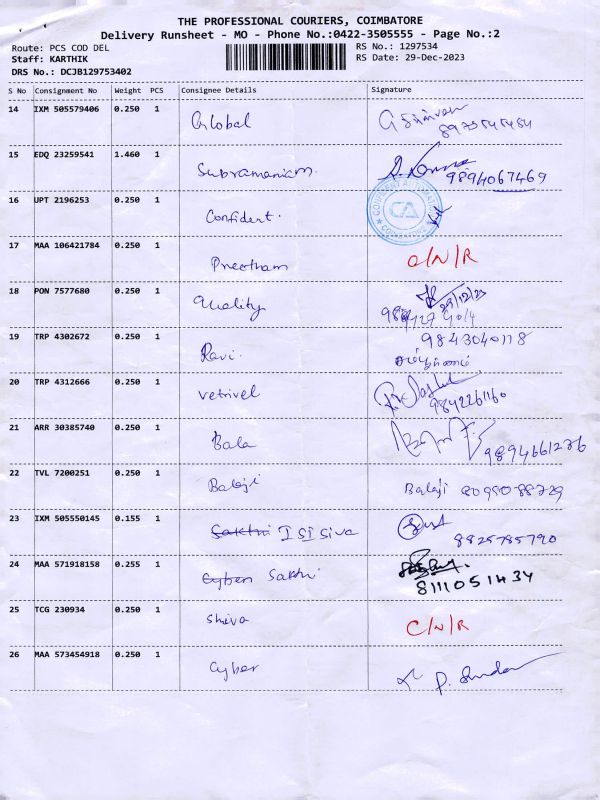 THE PROFESSIONAL COURIERS, COIMBATORE
Delivery Runsheet - MO - Phone No.:0422-3505555 - Page No.:2
Route: PCS COD DEL
RS No.: 1297534
Staff: KARTHIK
RS Date: 29-Dec-2023
DRS No.: DCJB129753402
S No Consignment No Weight PCS Consignee Details Signature
14 IXM 505579406 0.250 1 Global
15 EDQ 23259541 1.460 1 Subramaniam. 9894067469
16 UPT 2196253 0.250 1 Confident.
CA
COIMBATORE
17 MAA 106421784 0.250 1 Preetham C/N/R
18 PON 7577680 0.250 1 Quality 29/12/23
19 TRP 4302672 0.250 1 Ravi. 9843040118
20 TRP 4312666 0.250 1 Vetrivel 9842261160
21 ARR 30385740 0.250 1 Bala 9894661236
22 TVL 7200251 0.250 1 Balaji Balaji 8098088729
23 IXM 505550145 0.155 1 Sakthi ISI Siva 8825785790
24 MAA 571918158 0.255 1 Cyber Sakthi 8111051434
25 TCG 230934 0.250 1 Shiva C/N/R
26 MAA 573454918 0.250 1 Cyber